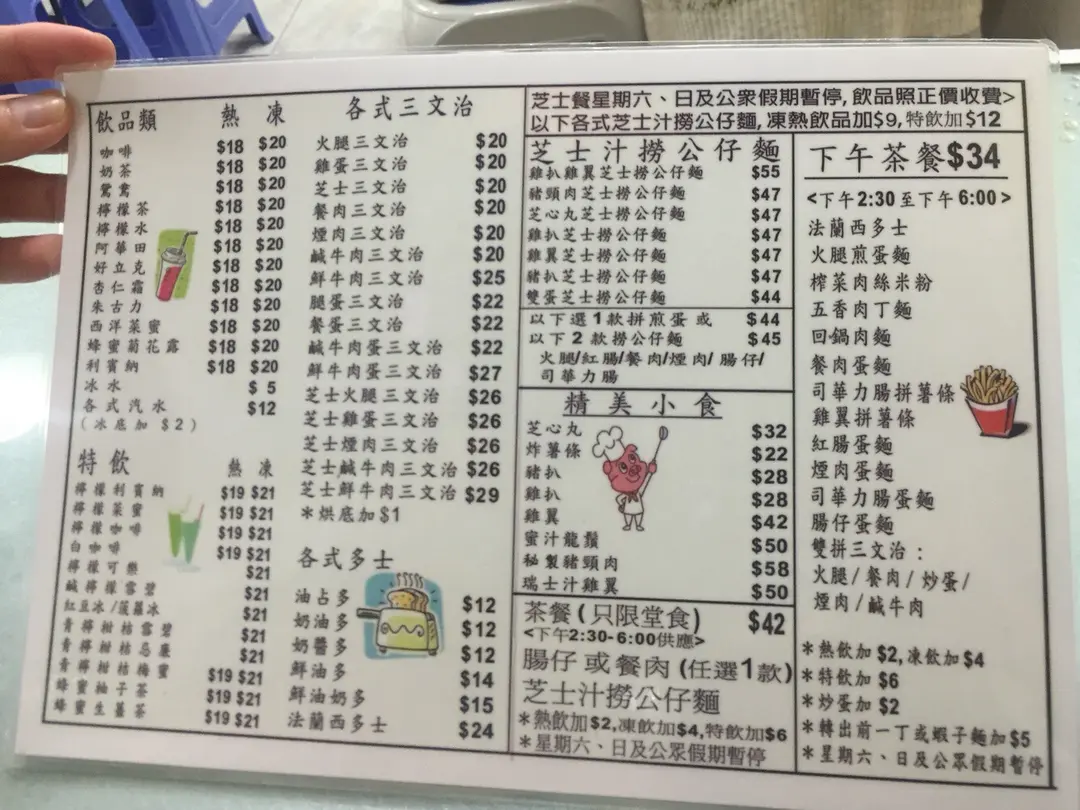 飲品類 熱 凍
咖啡 $18 $20
奶茶 $18 $20
鴛鴦 $18 $20
檸檬茶 $18 $20
檸檬水 $18 $20
阿華田 $18 $20
好立克 $18 $20
杏仁霜 $18 $20
朱古力 $18 $20
西洋菜蜜 $18 $20
蜂蜜菊花露 $18 $20
利賓納 $18 $20
冰水 $ 5
各式汽水 $12
(冰底加 $2)
特飲 熱 凍
檸檬利賓納 $19 $21
檸檬菜蜜 $19 $21
檸檬咖啡 $19 $21
白咖啡 $19 $21
檸檬可樂 $21
鹹檸檬雪碧 $21
紅豆冰/菠蘿冰 $21
青檸柑桔雪碧 $21
青檸柑桔忌廉 $21
青檸柑桔梅蜜 $19 $21
蜂蜜柚子茶 $19 $21
蜂蜜生薑茶 $19 $21
各式三文治
火腿三文治 $20
雞蛋三文治 $20
芝士三文治 $20
餐肉三文治 $20
煙肉三文治 $20
鹹牛肉三文治 $20
鮮牛肉三文治 $25
腿蛋三文治 $22
餐蛋三文治 $22
鹹牛肉蛋三文治 $22
鮮牛肉蛋三文治 $27
芝士火腿三文治 $26
芝士雞蛋三文治 $26
芝士煙肉三文治 $26
芝士鹹牛肉三文治 $26
芝士鮮牛肉三文治 $29
*烘底加$1
各式多士
油占多 $12
奶油多 $12
奶醬多 $12
鮮油多 $14
鮮油奶多 $15
法蘭西多士 $24
芝士餐星期六、日及公眾假期暫停,飲品照正價收費>
以下各式芝士汁撈公仔麵,凍熱飲品加$9,特飲加$12
芝士汁撈公仔麵
雞扒雞翼芝士撈公仔麵 $55
豬頸肉芝士撈公仔麵 $47
芝心丸芝士撈公仔麵 $47
雞扒芝士撈公仔麵 $47
雞翼芝士撈公仔麵 $47
豬扒芝士撈公仔麵 $47
雙蛋芝士撈公仔麵 $44
以下選1款拼煎蛋 或 $44
以下2款撈公仔麵 $45
火腿/紅腸/餐肉/煙肉/腸仔/
司華力腸
精美小食
芝心丸 $32
炸薯條 $22
豬扒 $28
雞扒 $28
雞翼 $42
蜜汁龍鬚 $50
秘製豬頸肉 $58
瑞士汁雞翼 $50
茶餐(只限堂食) $42
<下午2:30-6:00供應>
腸仔 或 餐肉 (任選1款)
芝士汁撈公仔麵
*熱飲加$2,凍飲加$4,特飲加$6
*星期六、日及公眾假期暫停
下午茶餐$34
<下午2:30至下午6:00>
法蘭西多士
火腿煎蛋麵
榨菜肉絲米粉
五香肉丁麵
回鍋肉麵
餐肉蛋麵
司華力腸拼薯條
雞翼拼薯條
紅腸蛋麵
煙肉蛋麵
司華力腸蛋麵
腸仔蛋麵
雙拼三文治:
火腿/餐肉/炒蛋/
煙肉/鹹牛肉
*熱飲加$2,凍飲加$4
*特飲加$6
*炒蛋加$2
*轉出前一丁或蝦子麵加$5
*星期六、日及公眾假期暫停